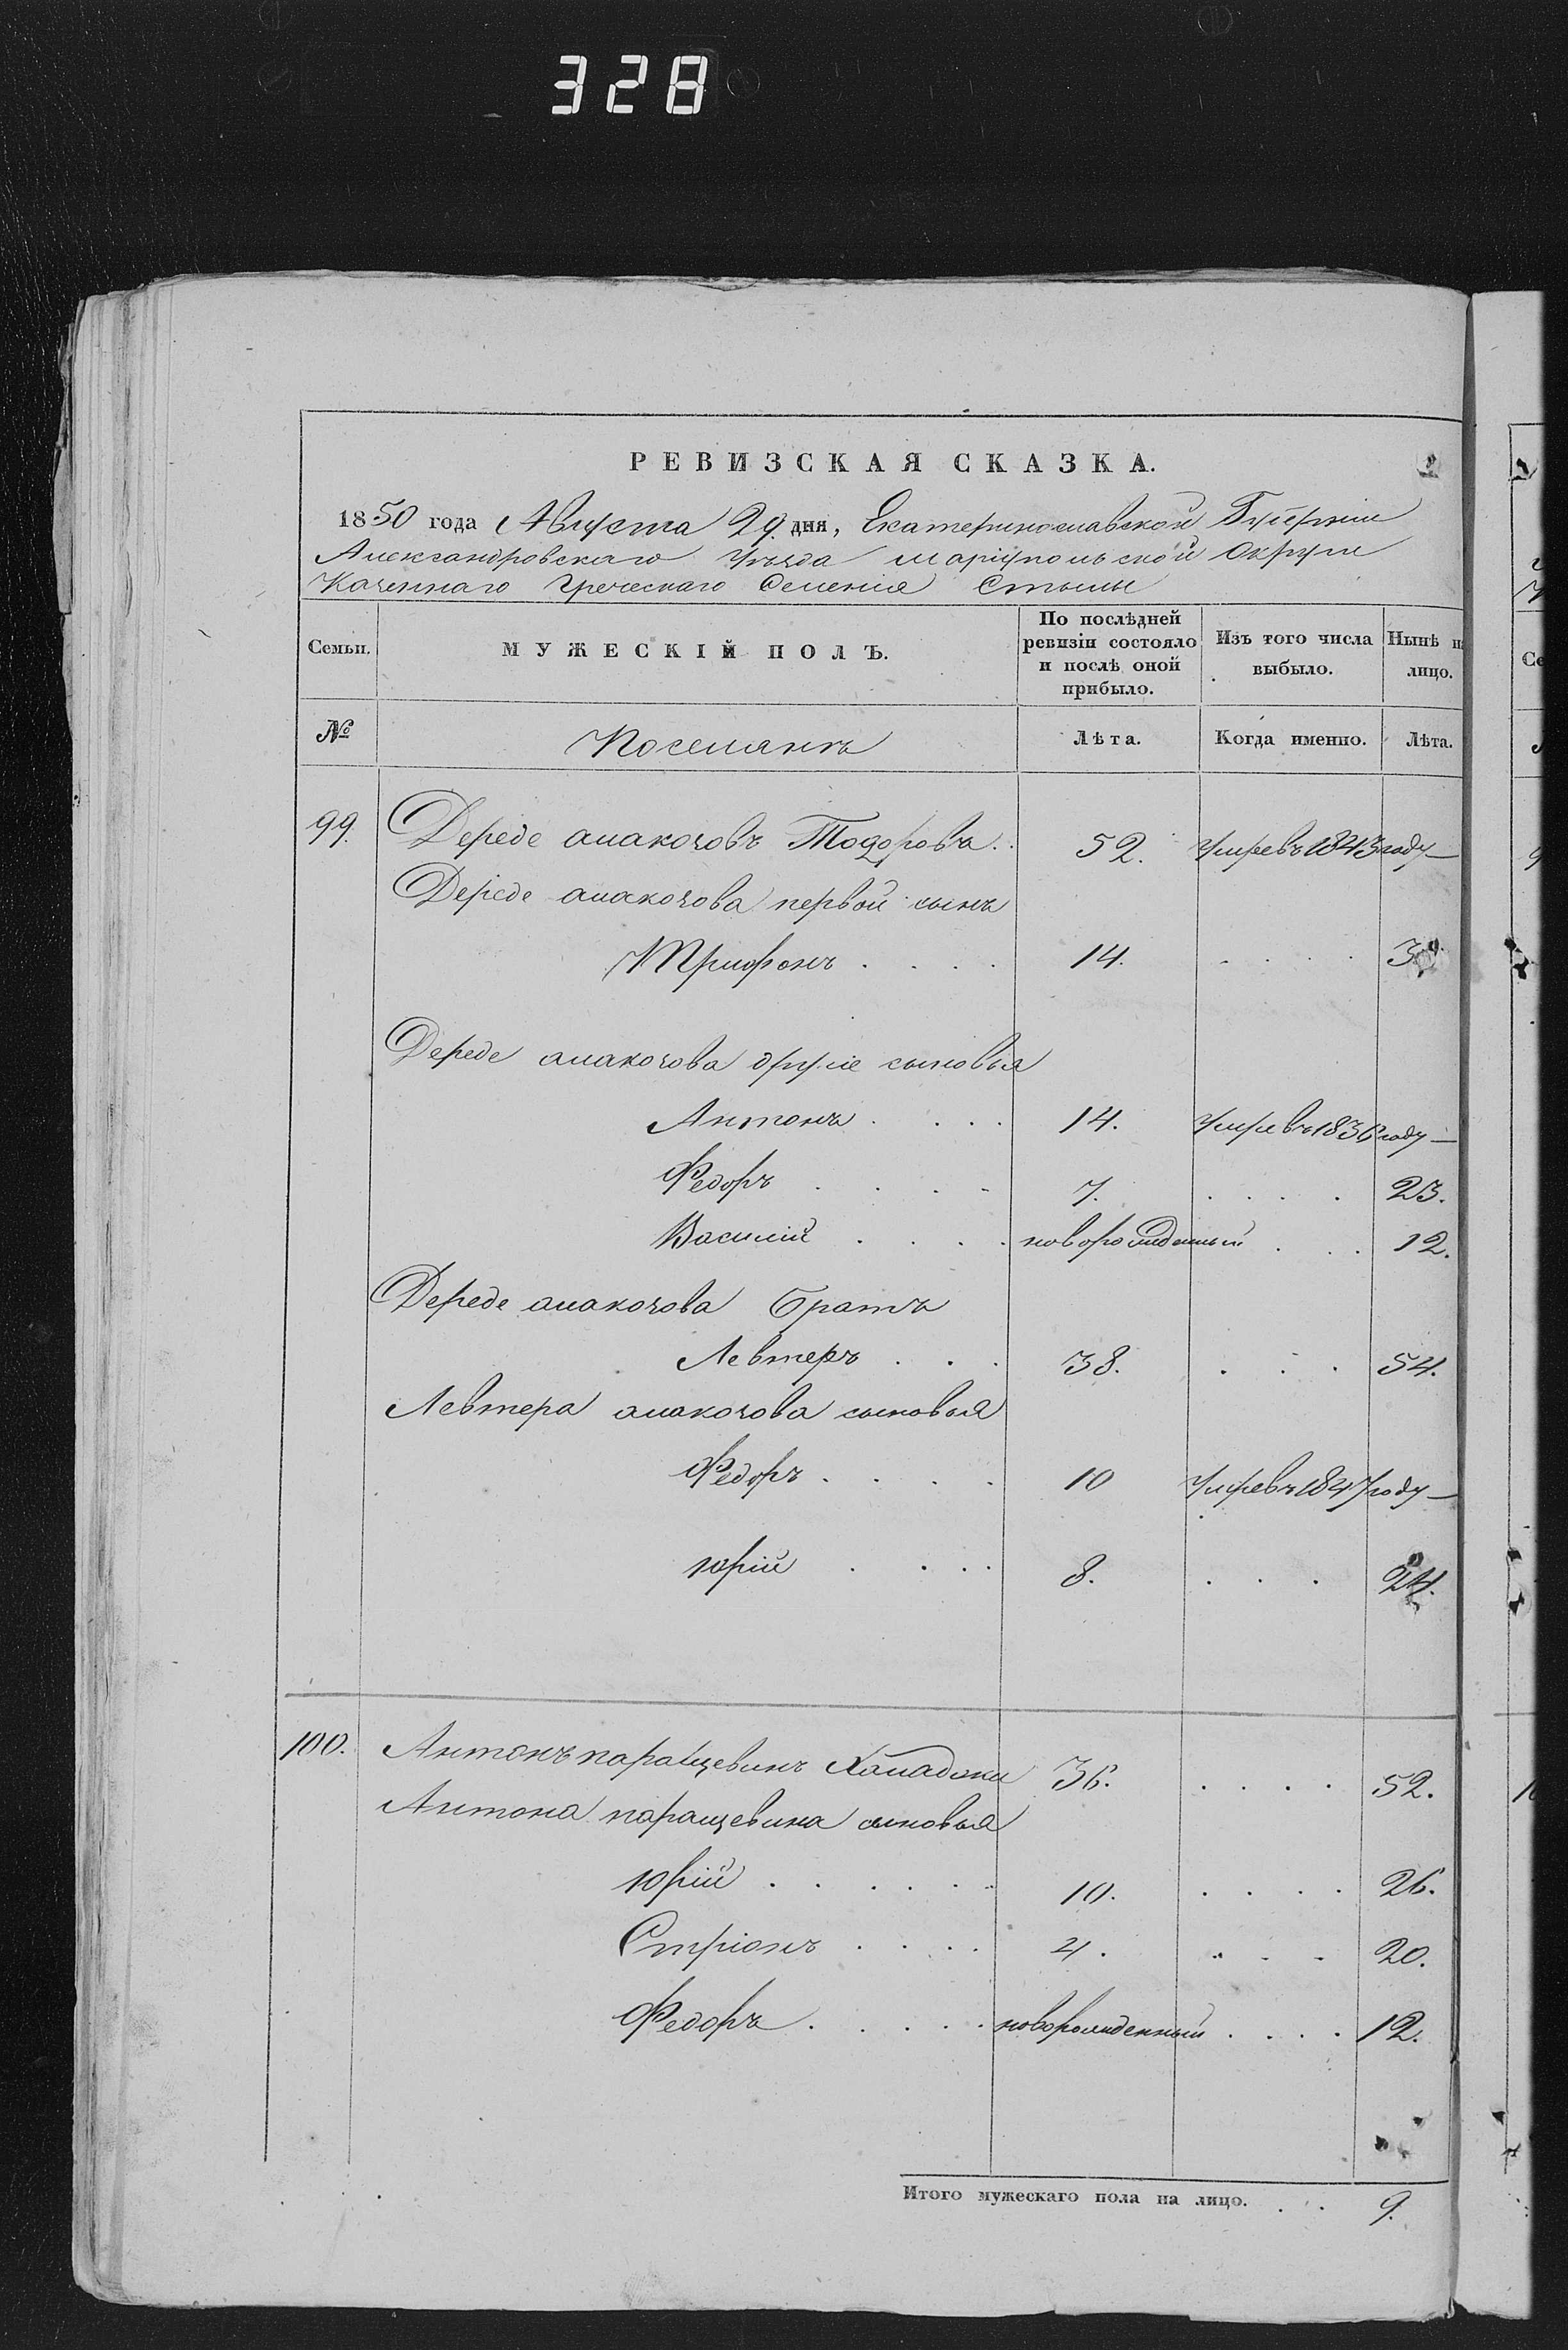 328
РЕВИЗСКАЯ СКАЗКА.
1850 года Августа 29 дня, Екатеринославской Губерніи
Александровскаго Уѣзда Маріупольской Округи
Казеннаго Греческаго Селенія Стылы
Семьи. МУЖЕСКІЙ ПОЛЪ. По послѣдней ревизіи состояло и послѣ оной прибыло. Изъ того числа выбыло. Нынѣ на лицо.
№ Поселянъ Лѣта. Когда именно. Лѣта.
99. Дереде Тодоровъ 52. Умре въ 1843 году —
Дереде первой сынъ
Трифонъ 14. 30.
Дереде другіе сыновья
Антонъ 14. Умре въ 1836 году —
Федоръ 7. 23.
Василій новорожденный 12.
Дереде братъ
Левтеръ 38. 54.
Левтера сыновья
Федоръ 10 Умре въ 1847 году —
Юрій 8. 24.
100. Антонъ паращевинъ 36. 52.
Антона паращевина сыновья
Юрій 10. 26.
Стріонъ 4. 20.
Федоръ новорожденный 12.
Итого мужескаго пола на лицо. 9.